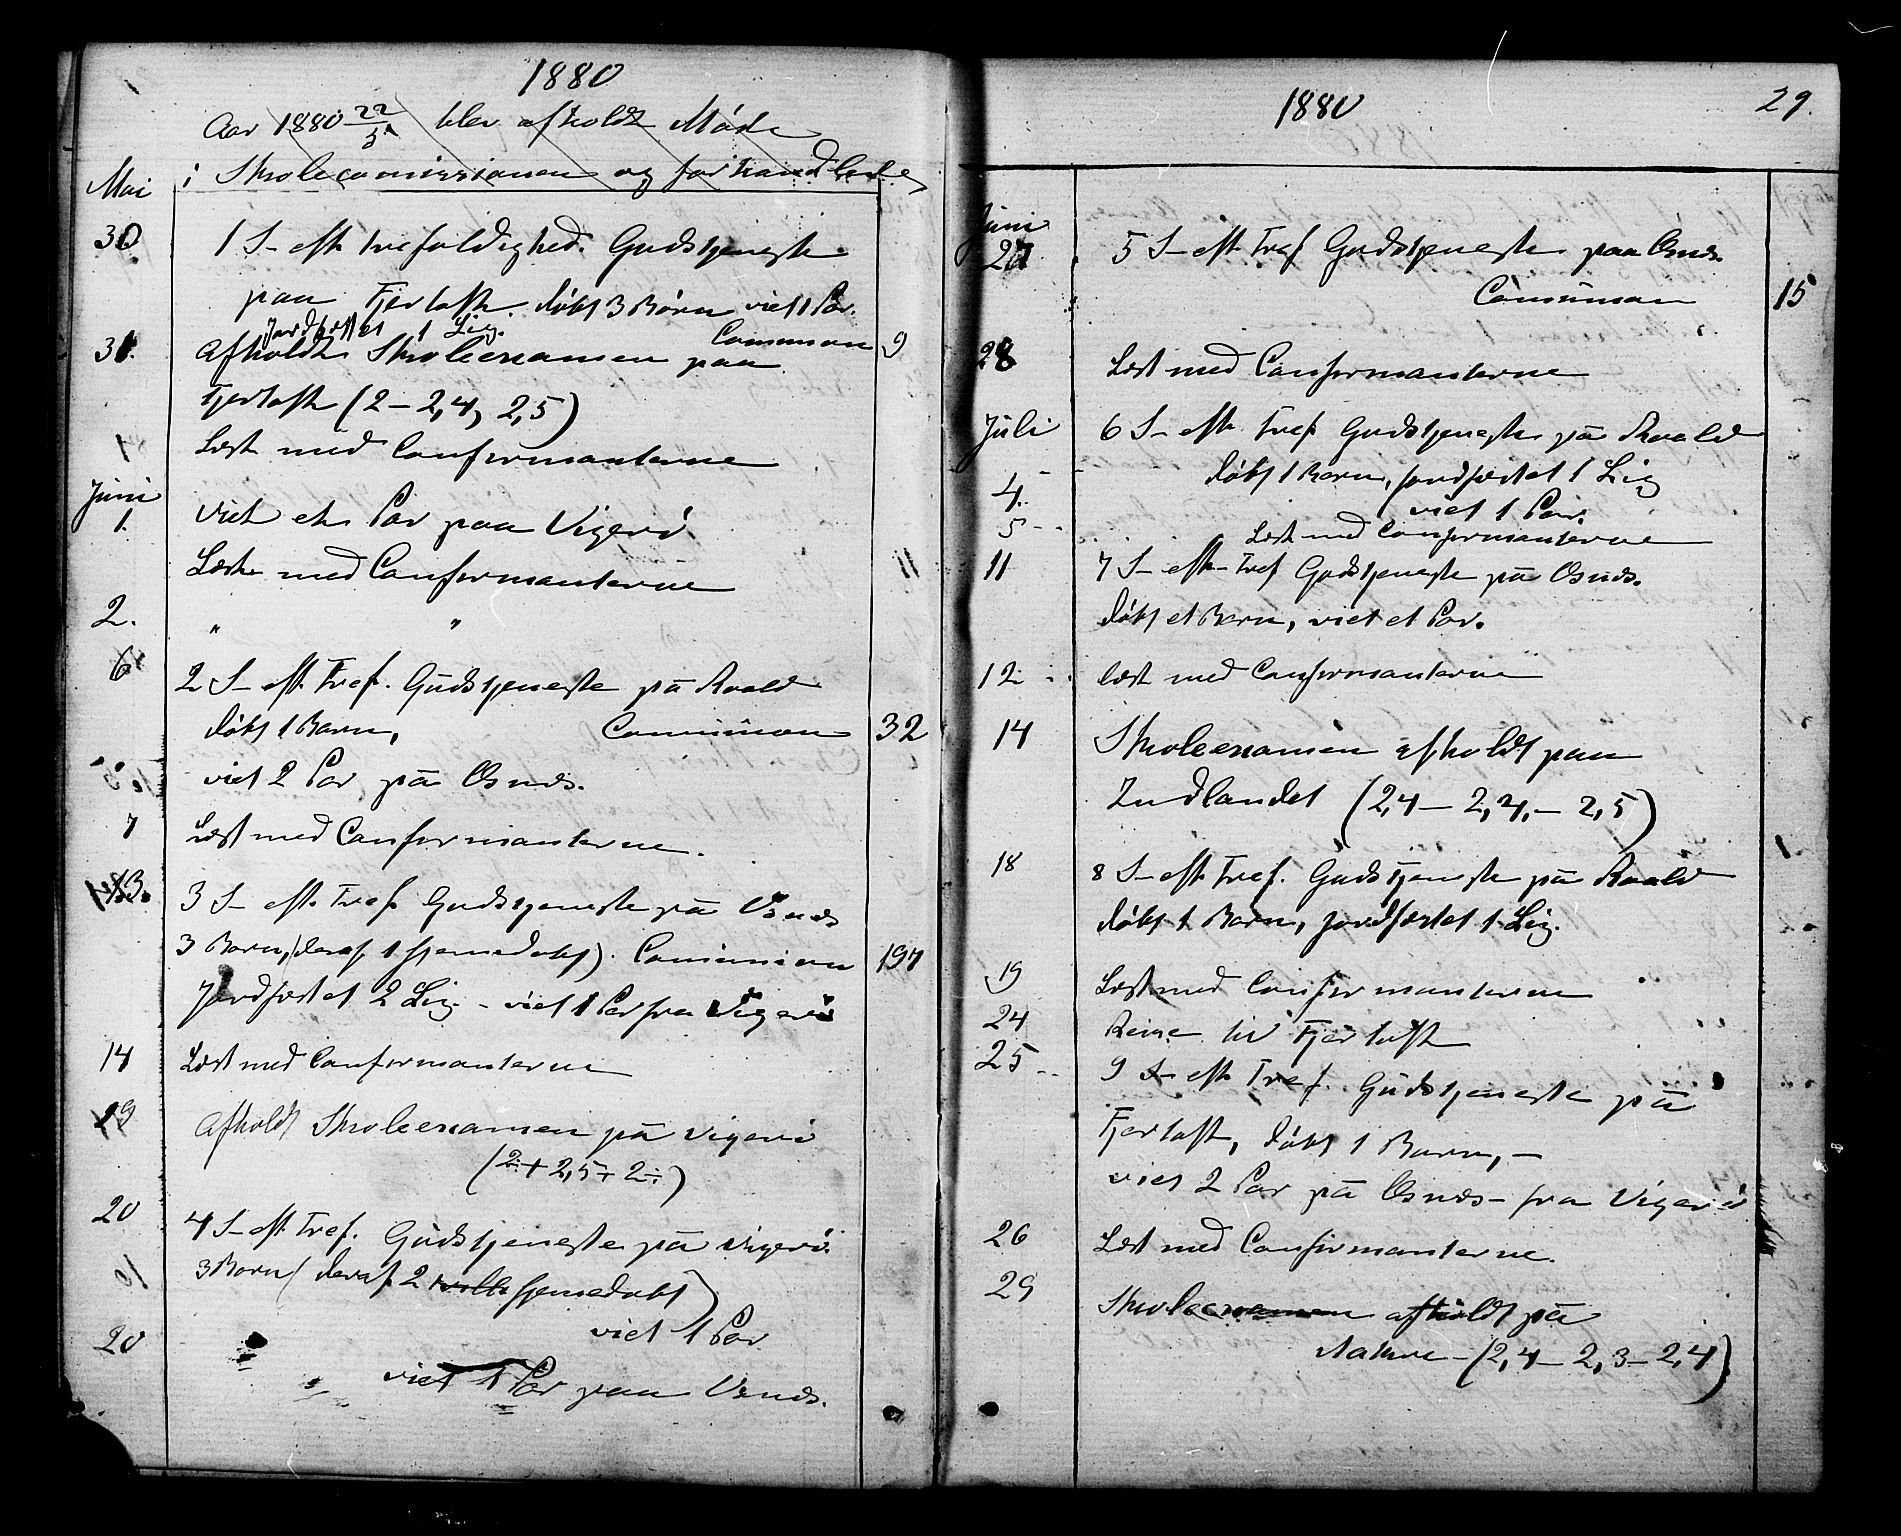 1880
Aar 1880 22/5 blev afholdt Møde
i Skolecomissionen og forhandlede
Mai
30 1 S. eft. trefoldighed. Gudstjeneste
paa Fjertoft. døbt 3 Børn viet 1 Par.
jordfæstet 1 Lig. Communion 9
31. Afholdt Skoleexamen paa
Fjertoft (2 - 2,4, 2,5)
Læst med Confirmanterne
Juni
1. viet et Par paa Vigerö
Læst med Confirmanterne
2. " "
6 2 S. eft. Tref. Gudstjeneste på Roald
døbt 1 Barn, Communion 32
viet 2 Par på Osnæs.
7 Læst med Confirmanterne.
13. 3 S. eft. Tref. Gudstjeneste på Osnæs
3 Børn, (deraf 1 hjemmedøbt). Communion 197
Jordfæstet 2 Lig. - viet 1 Par fra Vigerö
14 Læst med Confirmanterne
19 Afholdt Skoleexamen på Vigerö
(2÷ + 2,5 + 2÷)
20 4 S. eft. Tref. Gudstjeneste på Vigerö.
3 Børn (deraf 2 hjemmedøbt)
viet 1 Par
20 viet 1 Par paa Osnæs.
1880 29.
Juni
27 5 S. eft. Tref Gudstjeneste paa Osnæs.
Comunion 15
28 Læst med Confirmanterne
Juli 6 S. eft. Tref Gudstjeneste på Roald
4. døbt 1 Barn, jordfæstet 1 Lig
viet 1 Par.
5 Læst med Confirmanterne
11 7 S. eft. Tref Gudstjeneste på Osnæs.
døbt et Barn, viet et Par.
12 læst med Confirmanterne
14 Skoleexamen afholdt paa
Indlandet (2,4 - 2,4. - 2,5)
18 8 S. eft. Tref. Gudstjeneste på Roald
døbt 1 Barn, jordfæstet 1 Lig.
19 Læst med Confirmanterne
24 Reise til Fjertoft
25 9 S. eft. Tref. Gudstjeneste på
Fjertoft, døbt 1 Barn, -
viet 2 Par på Osnæs - fra Vigerö
26 Læst med Confirmanterne.
29 Skoleexamen afholdt på
(2,4 - 2,3 - 2,4)